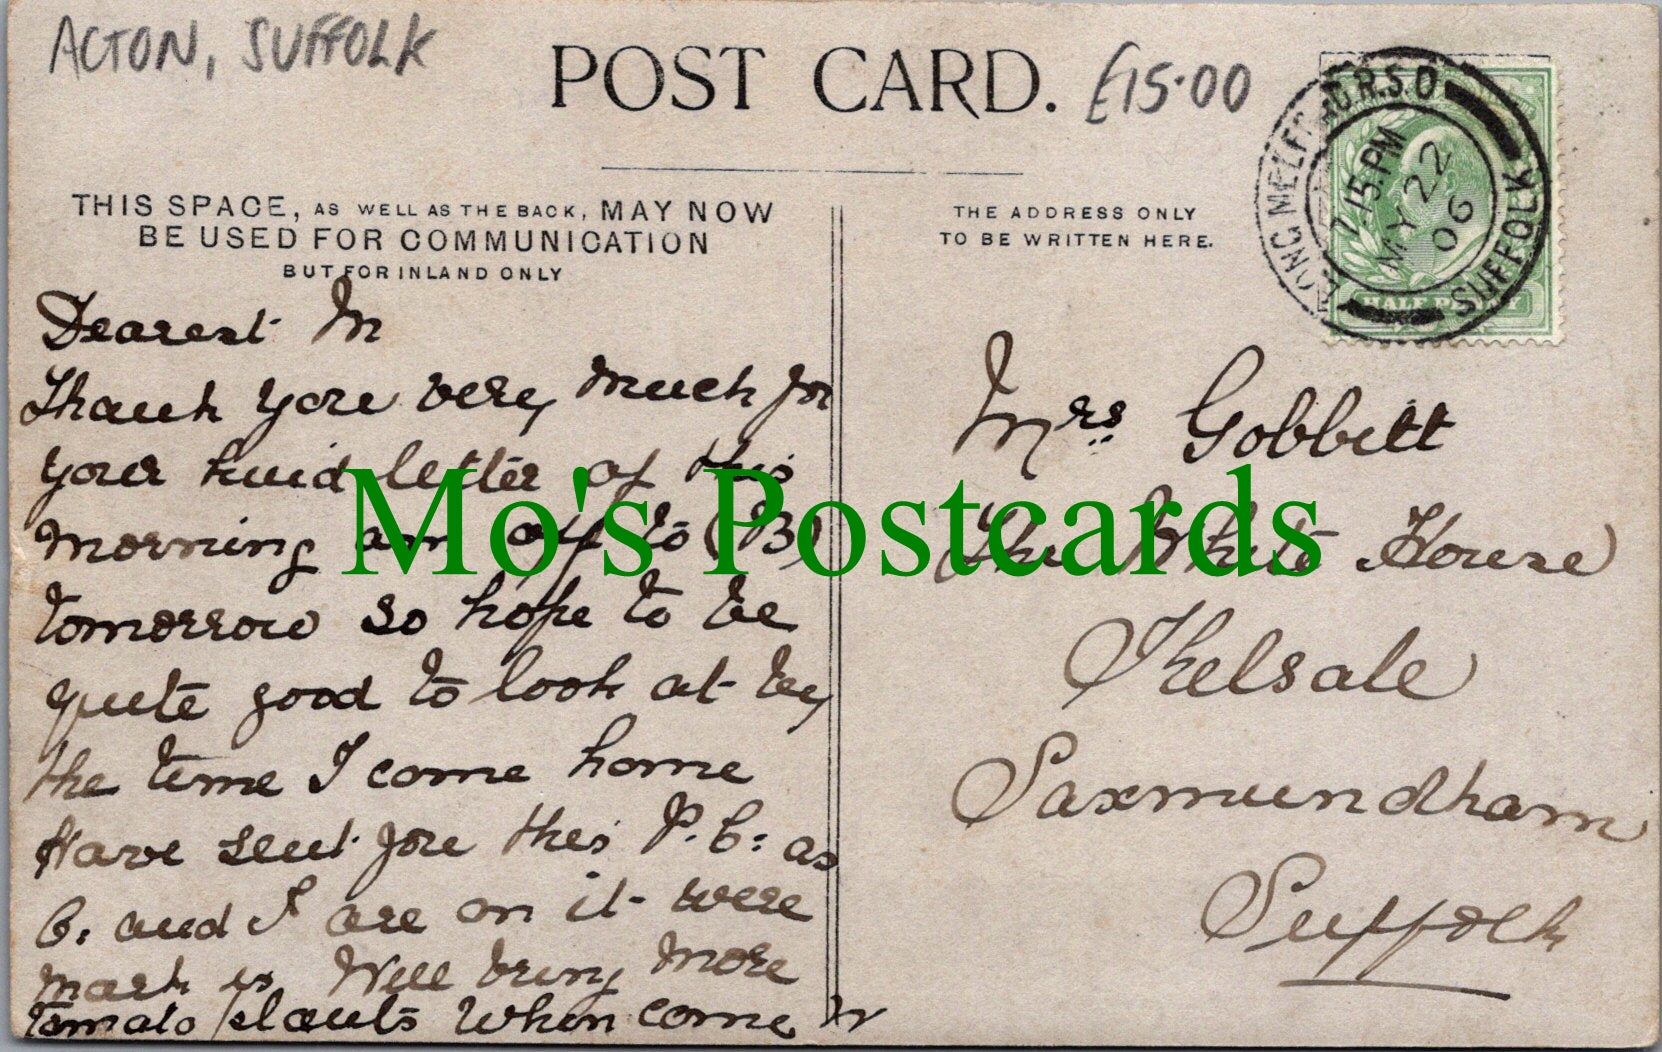 ACTON, SUFFOLK
POST CARD.
£15.00
THIS SPACE, AS WELL AS THE BACK, MAY NOW
BE USED FOR COMMUNICATION
BUT FOR INLAND ONLY
THE ADDRESS ONLY
TO BE WRITTEN HERE.
LONG MELFORD R.S.O
SUFFOLK
7.15 PM
MY 22
06
HALF PENNY
Dearest M
Thank you very much for
your kind letter of this
morning am off to (B)
tomorrow so hope to be
quite good to look at by
the time I come home
Have sent you this P.C: as
C. and I are on it were
mark is Will bring more
tomato plants when come
Mrs Gobbett
The White House
Kelsale
Saxmundham
Suffolk
Mo's Postcards